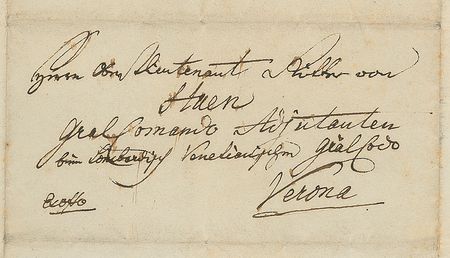 Herrn Oberstlieutenant Ritter von
Gral Comando Adjutanten
beim Lombardisch Venezianischem Gräl Codo
Verona